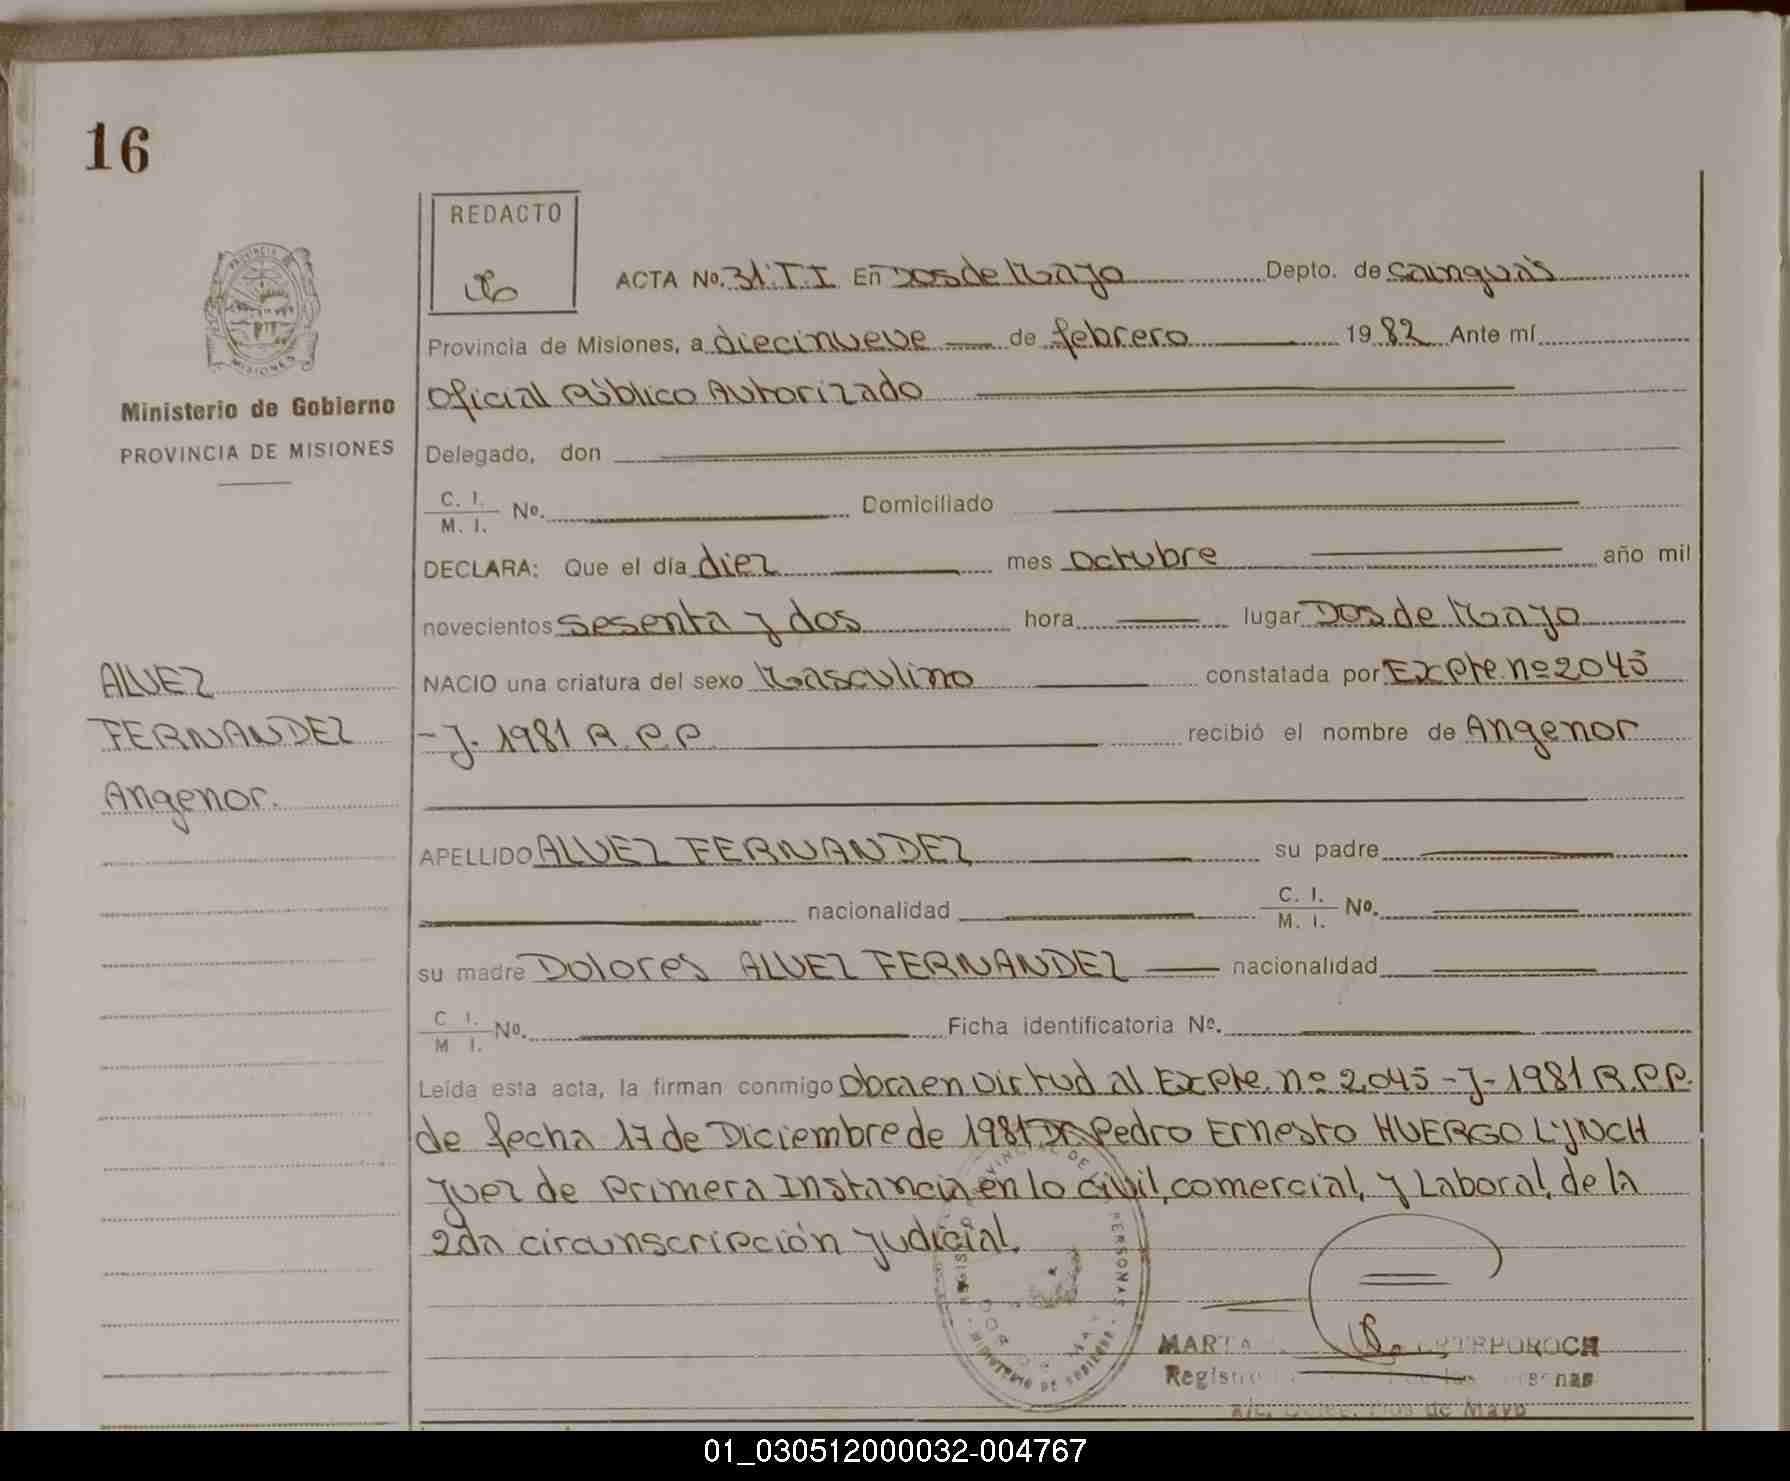 16
REDACTO
PROVINCIA DE
MISIONES
Ministerio de Gobierno
PROVINCIA DE MISIONES
ACTA No. 31. T. I. En Dos de Mayo Depto. de Cainguás
Provincia de Misiones, a diecinueve de febrero 1982 Ante mí
Oficial Público Autorizado
Delegado, don
C. I.
M. I. No. Domiciliado
DECLARA: Que el día diez mes octubre año mil
novecientos sesenta y dos hora lugar Dos de Mayo
ALVEZ
NACIO una criatura del sexo Masculino constatada por Expte. nº 2045
FERNANDEZ
-J- 1981 R.P.P. recibió el nombre de Angenor
Angenor.
APELLIDO ALVEZ FERNANDEZ su padre
nacionalidad C. I.
M. I. No.
su madre Dolores ALVEZ FERNANDEZ nacionalidad
C I.
M I. No. Ficha identificatoria No.
Leída esta acta, la firman conmigo obra en virtud al Expte. nº 2.045-J-1981 R.P.P.
de fecha 17 de Diciembre de 1981 Dr. Pedro Ernesto HUERGO LYNCH
Juez de Primera Instancia en lo Civil, comercial, y Laboral, de la
2da circunscripción judicial.
PERSONAS
MARTA
Registro
Dos de Mayo
01_030512000032-004767